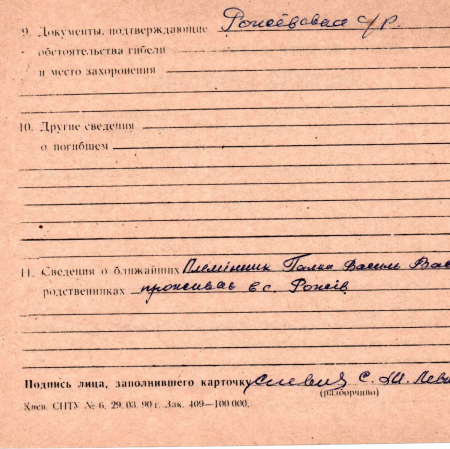 9. Документы, подтверждающие Рожевская с/р.
обстоятельства гибели
и место захоронения
10. Другие сведения
о погибшем
11. Сведения о ближайших Племінник Палка Василь Вас
родственниках проживає в с. Рожів
Подпись лица, заполнившего карточку С. М.
(разборчиво)
Киев. СПТУ № 6, 29. 03. 90 г. Зак. 409—100 000.